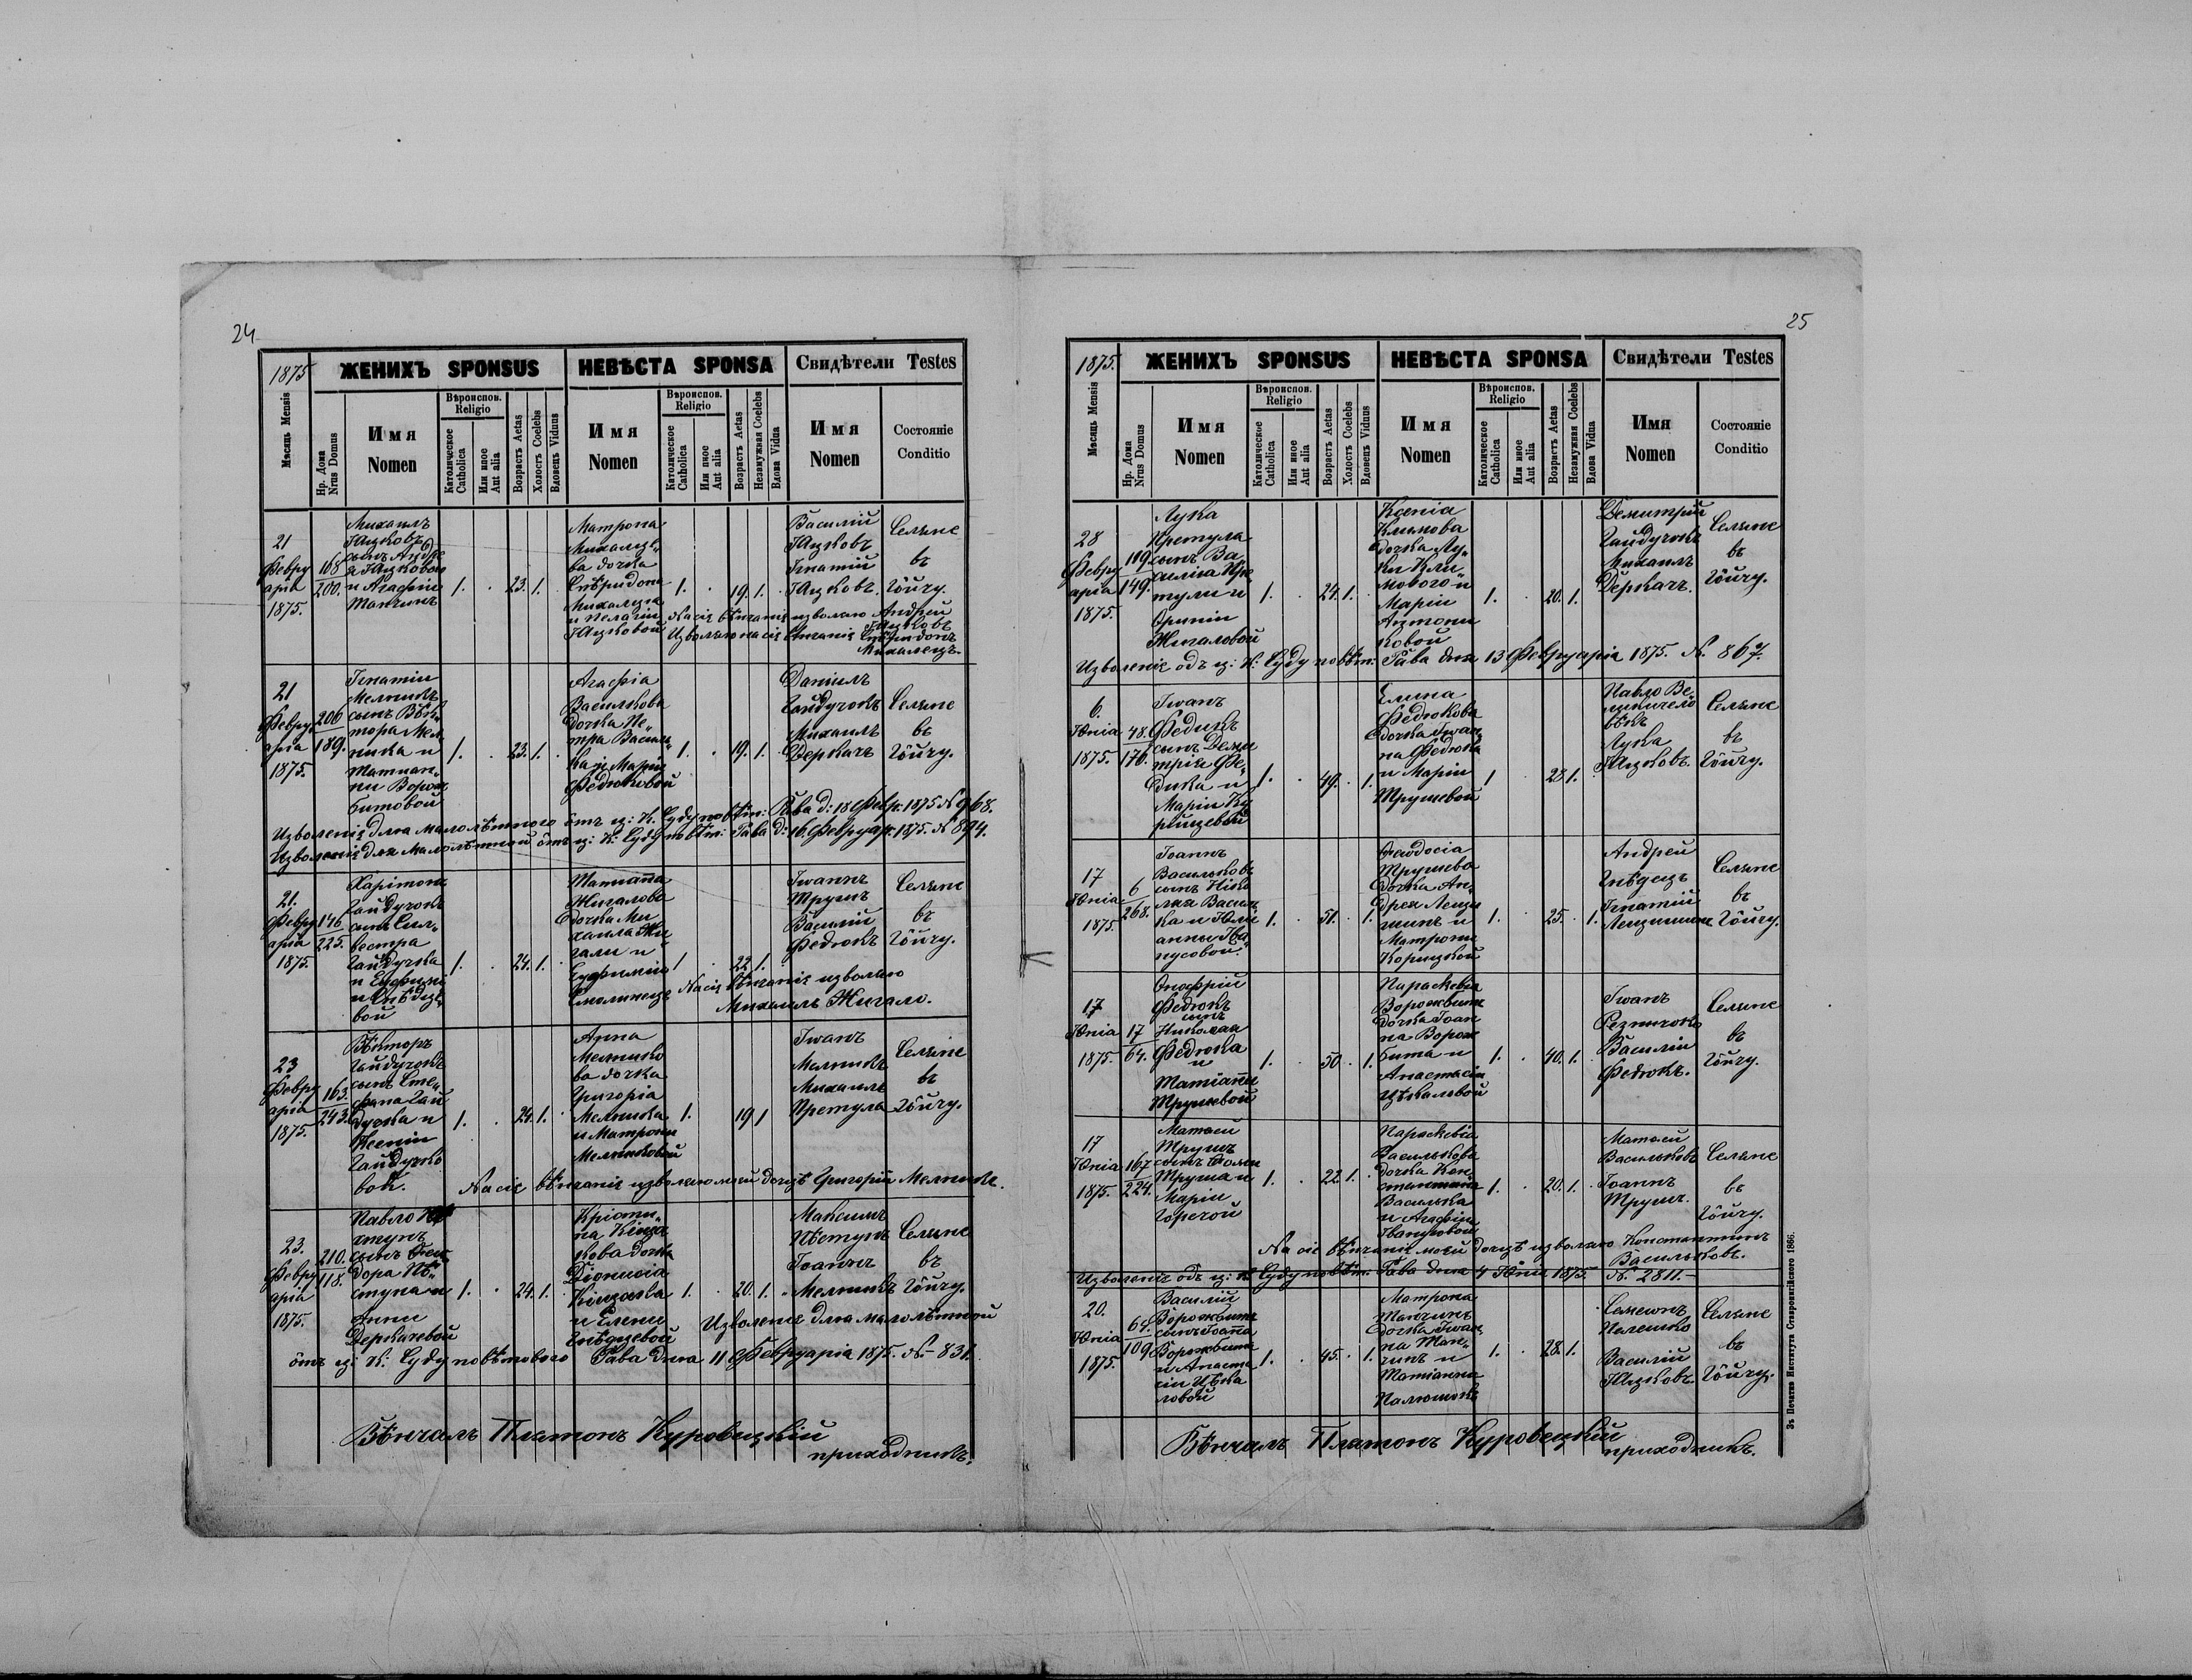 24
1875
ЖЕНИХЪ SPONSUS
НЕВѢСТА SPONSA
Свидѣтели Testes
Мѣсяць Mensis
Нр. Дома
Nrus Domus
Имя
Nomen
Вѣроиспов.
Religio
Католическое
Catholica
Или иное
Aut alia
Возрастъ Aetas
Холостъ Coelebs
Вдовецъ Viduus
Имя
Nomen
Вѣроиспов.
Religio
Католическое
Catholica
Или иное
Aut alia
Возрастъ Aetas
Незамужная Coelebs
Вдова Vidua
Имя
Nomen
Состояніе
Conditio
21
Февру
арія
1875.
168
200.
Михаилъ
Яцковъ
сынъ Андре
я Яцкового
и Агафіи
Манчинъ
1. . 23. 1. .
Матрона
Михалце
ва дочка
Спѣридона
Михалеца
и Пелагіи
Яцковой
1. . 19. 1. .
Василій
Яцковъ
Игнатій
Яцковъ.
Селяне
въ
Гойчу.
На сіе вѣнчаніе изволяю Андрей
Яцковъ
Изволяю на сіе вѣнчаніе Спѣридонъ
Михалецъ.
21
Февру
арія
1875.
206
189.
Игнатій
Мельникъ
сынъ Вѣк
тора Мель
ника и
Татиан
ни Ворож
битовой
1. . 23. 1. .
Агафія
Василькова
дочка Пе
тра Василь
ка и Маріи
Федюковой
1. . 19. 1.
Даніилъ
Гайдучокъ
Михаилъ
Деркачъ
Селяне
въ
Гойчу.
Изволеніе для малолѣтного отъ ц: К. Суду повѣт: Рава д: 18 Февр. 1875 N 968.
Изволеніе для малолѣтной отъ ц: К: Суду повѣт: Рава д: 16. Февруар. 1875. N 894.
21.
Февру
арія
1875.
146
225.
Харітонъ
Гайдучокъ
сынъ Сил
вестра
Гайдучка
и Евфиміи
Гнѣдце
вой
1. . 24. 1.
Татианна
Жигалова
дочка Ми
хаила Жи
гали и
Евфиміи
Смолинецъ
1 . 22 1.
Іwаннъ
Трушъ
Василій
Федюкъ
Селяне
въ
Гойчу.
На сіе вѣнчаніе изволяю
Михаилъ Жигало.
23
Февру
арія
1875.
163.
243.
Вѣкторъ
Гайдучокъ
сынъ Сте
фана Гай
дучка и
Ксеніи
Гайдучко
вой.
1. . 24. 1. .
Анна
Мельнико
ва дочка
Григорія
Мельника
и Матрони
Мельниковой
1. 19 1
Іwанъ
Мельникъ
Михаилъ
Претула
Селяне
въ
Гойчу.
На сіе вѣнчаніе изволяю моей дочцѣ Григорій Мельникъ.
23.
Февру
арія
1875.
210.
118.
Павло
стунъ
сынъ Θео
дора Пѣ
стуна и
Анни
Деркачевой
1. . 24. 1.
Крісти
на
кова дочка
Діонисія
и Елени
Гнѣдцевой
1. . 20. 1. .
Максимъ
Пѣстунъ
Іоаннъ
Мельникъ
Селяне
въ
Гойчу.
Изволеніе для малолѣтной
отъ ц: К: Суду повѣтового Рава дня 11 Февруарія 1875. N.- 831.
Вѣнчалъ Платонъ Куровицкій
приходникъ.
25
1875.
ЖЕНИХЪ SPONSUS
НЕВѢСТА SPONSA
Свидѣтели Testes
Мѣсяць Mensis
Нр. Дома
Nrus Domus
Имя
Nomen
Вѣроиспов.
Religio
Католическое
Catholica
Или иное
Aut alia
Возрастъ Aetas
Холостъ Coelebs
Вдовецъ Viduus
Имя
Nomen
Вѣроиспов.
Religio
Католическое
Catholica
Или иное
Aut alia
Возрастъ Aetas
Незамужная Coelebs
Вдова Vidua
Имя
Nomen
Состояніе
Conditio
28
Февру
арія
1875.
119.
149.
Лука
Претула
сынъ Ва
силія Пре
тули и
Ориніи
Жигаловой
1. . 24. 1.
Ксенія
Климова
дочка Лу
ки Кли
мового и
Маріи
Антони
ковой
1. . 20. 1.
Демитрій
Гайдучокъ
Михаилъ
Деркачъ.
Селяне
въ
Гойчу.
Изволеніе одъ ц: К: Суду повѣт: Рава дня 13 Февруарія 1875. N. 867.
6.
Юнія
1875.
48.
170.
Іwанъ
Федикъ
сынъ Деми
трія Фе
дика и
Маріи
1. . 49. . 1.
Елена
Федюкова
дочка Іwан
на Федюка
и Маріи
Трушевой
1 28 1.
Павло Ве
личело
вѣкъ
Лука
Яцковъ.
Селяне
въ
Гойчу.
17
Юнія
1875.
6
268.
Іоаннъ
Васильковъ
сынъ Ніко
лая Василь
ка и Юли
анны Ива
нусовой.
1. . 51. . 1.
Θеwдосія
Трушева
дочка Ан
дрея
и
Матрони
Корицкой
1. . 25. . 1.
Андрей
Гнѣдецъ
Игнатій
Селяне
въ
Гойчу.
17
Юнія
1875.
17
64.
Онофрій
Федюкъ
сынъ
Николая
Федюка
и
Татіанни
Трушевой
1. . 50 . 1.
Параскевія
Ворожбитъ
дочка Іоан
на Ворож
бита и
Анастасіи
Цѣкаловой
1. . 40. 1.
Іwанъ
Резничокъ
Василій
Федюкъ.
Селяне
въ
Гойчу.
17
Юнія
1875.
167
224.
Матθей
Трушъ
сынъ Θоми
Труша и
Маріи
Горечой
1. . 22 1. .
Параскевія
Василькова
дочка Кон
стантина
Василька
и Агафіи
Іванусовой
1. . 20. 1. .
Матθей
Васильковъ
Іоаннъ
Трушъ.
Селяне
въ
Гойчу.
На сіе вѣнчаніе моей дочцѣ изволяю Константинъ
Васильковъ.
Изволеніе одъ ц: К: Суду повѣт: Рава дня 4 Юнія 1875. N. 2811.-
20.
Юнія
1875.
64.
109.
Василій
Ворожбитъ
сынъ Іоанна
Ворожбита
и Анаста
сіи Цѣка
ловой
1. . 45. . 1.
Матрона
Манчинъ
дочка Іwан
на Ман
чинъ и
Татіанни
Палюшокъ
1. . 28. 1.
Семеwнъ
Пелешко
Василій
Яцковъ.
Селяне
въ
Гойчу.
Вѣнчалъ Платонъ Куровецкій
приходникъ.
Зъ Печатнѣ Института Ставропигійского 1866.